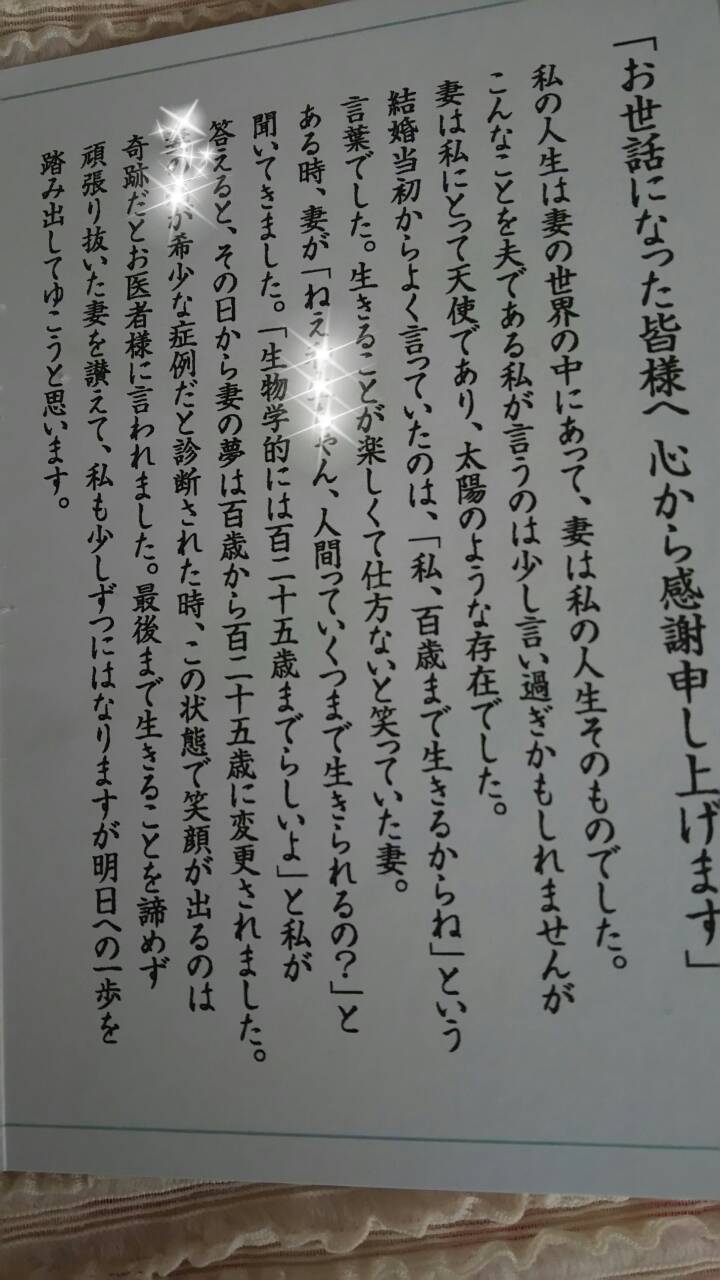 「お世話になった皆様へ 心から感謝申し上げます」
私の人生は妻の世界の中にあって、妻は私の人生そのものでした。
こんなことを夫である私が言うのは少し言い過ぎかもしれませんが
妻は私にとって天使であり、太陽のような存在でした。
結婚当初からよく言っていたのは、「私、百歳まで生きるからね」という
言葉でした。生きることが楽しくて仕方ないと笑っていた妻。
ある時、妻が「ねえ ゃん、人間っていくつまで生きられるの？」と
聞いてきました。「生物学的には百二十五歳までらしいよ」と私が
答えると、その日から妻の夢は百歳から百二十五歳に変更されました。
が希少な症例だと診断された時、この状態で笑顔が出るのは
奇跡だとお医者様に言われました。最後まで生きることを諦めず
頑張り抜いた妻を讃えて、私も少しずつにはなりますが明日への一歩を
踏み出してゆこうと思います。